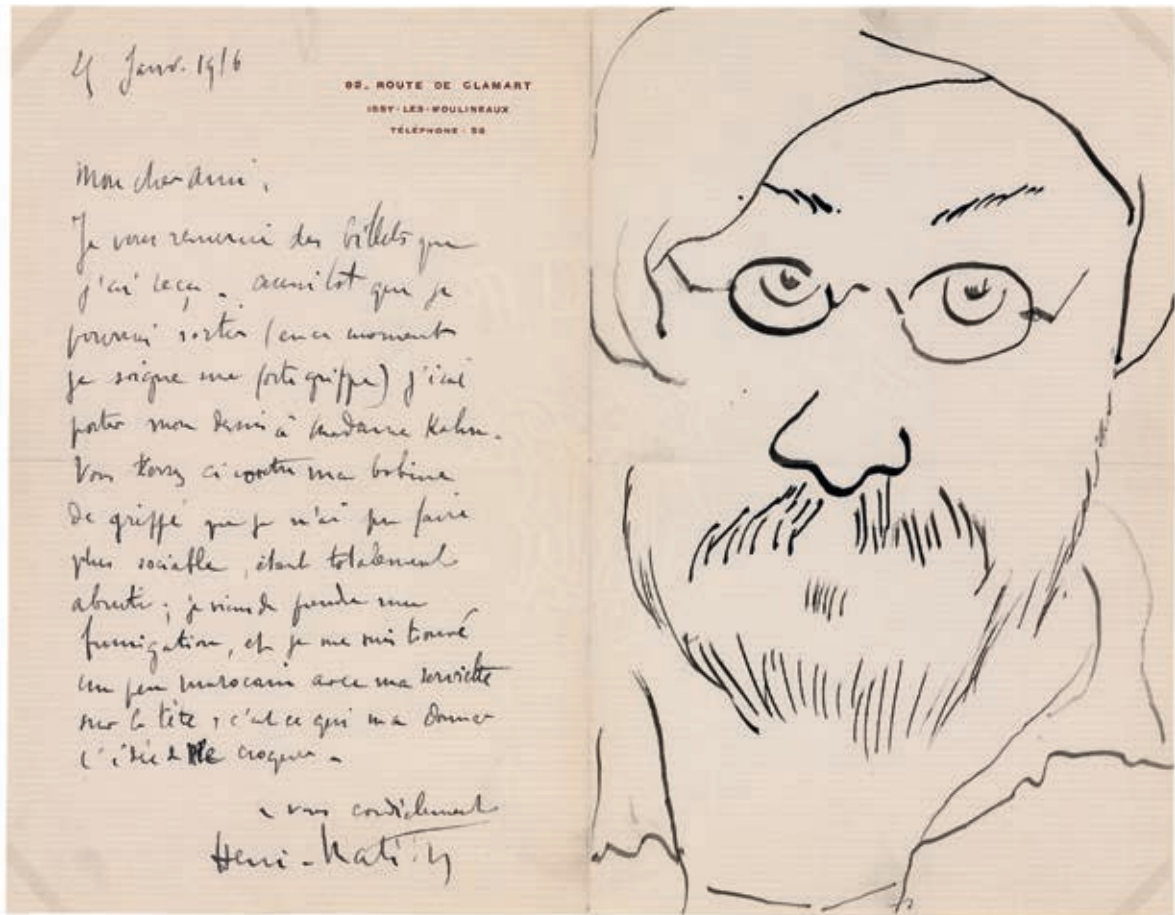 Janv. 1916
92, ROUTE DE CLAMART
ISSY-LES-MOULINEAUX
TÉLÉPHONE - 58
Mon cher ami,
Je vous remercie des billets que
j'ai reçu. aussitot que je
pourrai sortir (en ce moment
je soigne une forte grippe) j'irai
porter mon dessin à Madame Kahn.
Vous verrez ci contre ma bobine
de grippé que je n'ai pu faire
plus sociable, étant totalement
abruti; je viens de prendre une
fumigation, et je me suis trouvé
un peu marocain avec ma serviette
sur la tête; c'est ce qui m'a donner
l'idée de me croquer.
a vous cordialement
Henri-Matisse